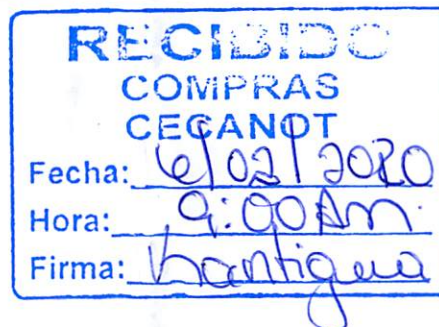 RECIBIDO
COMPRAS
CECANOT
Fecha: 6/02/2020
Hora: 9:00 AM.
Firma: